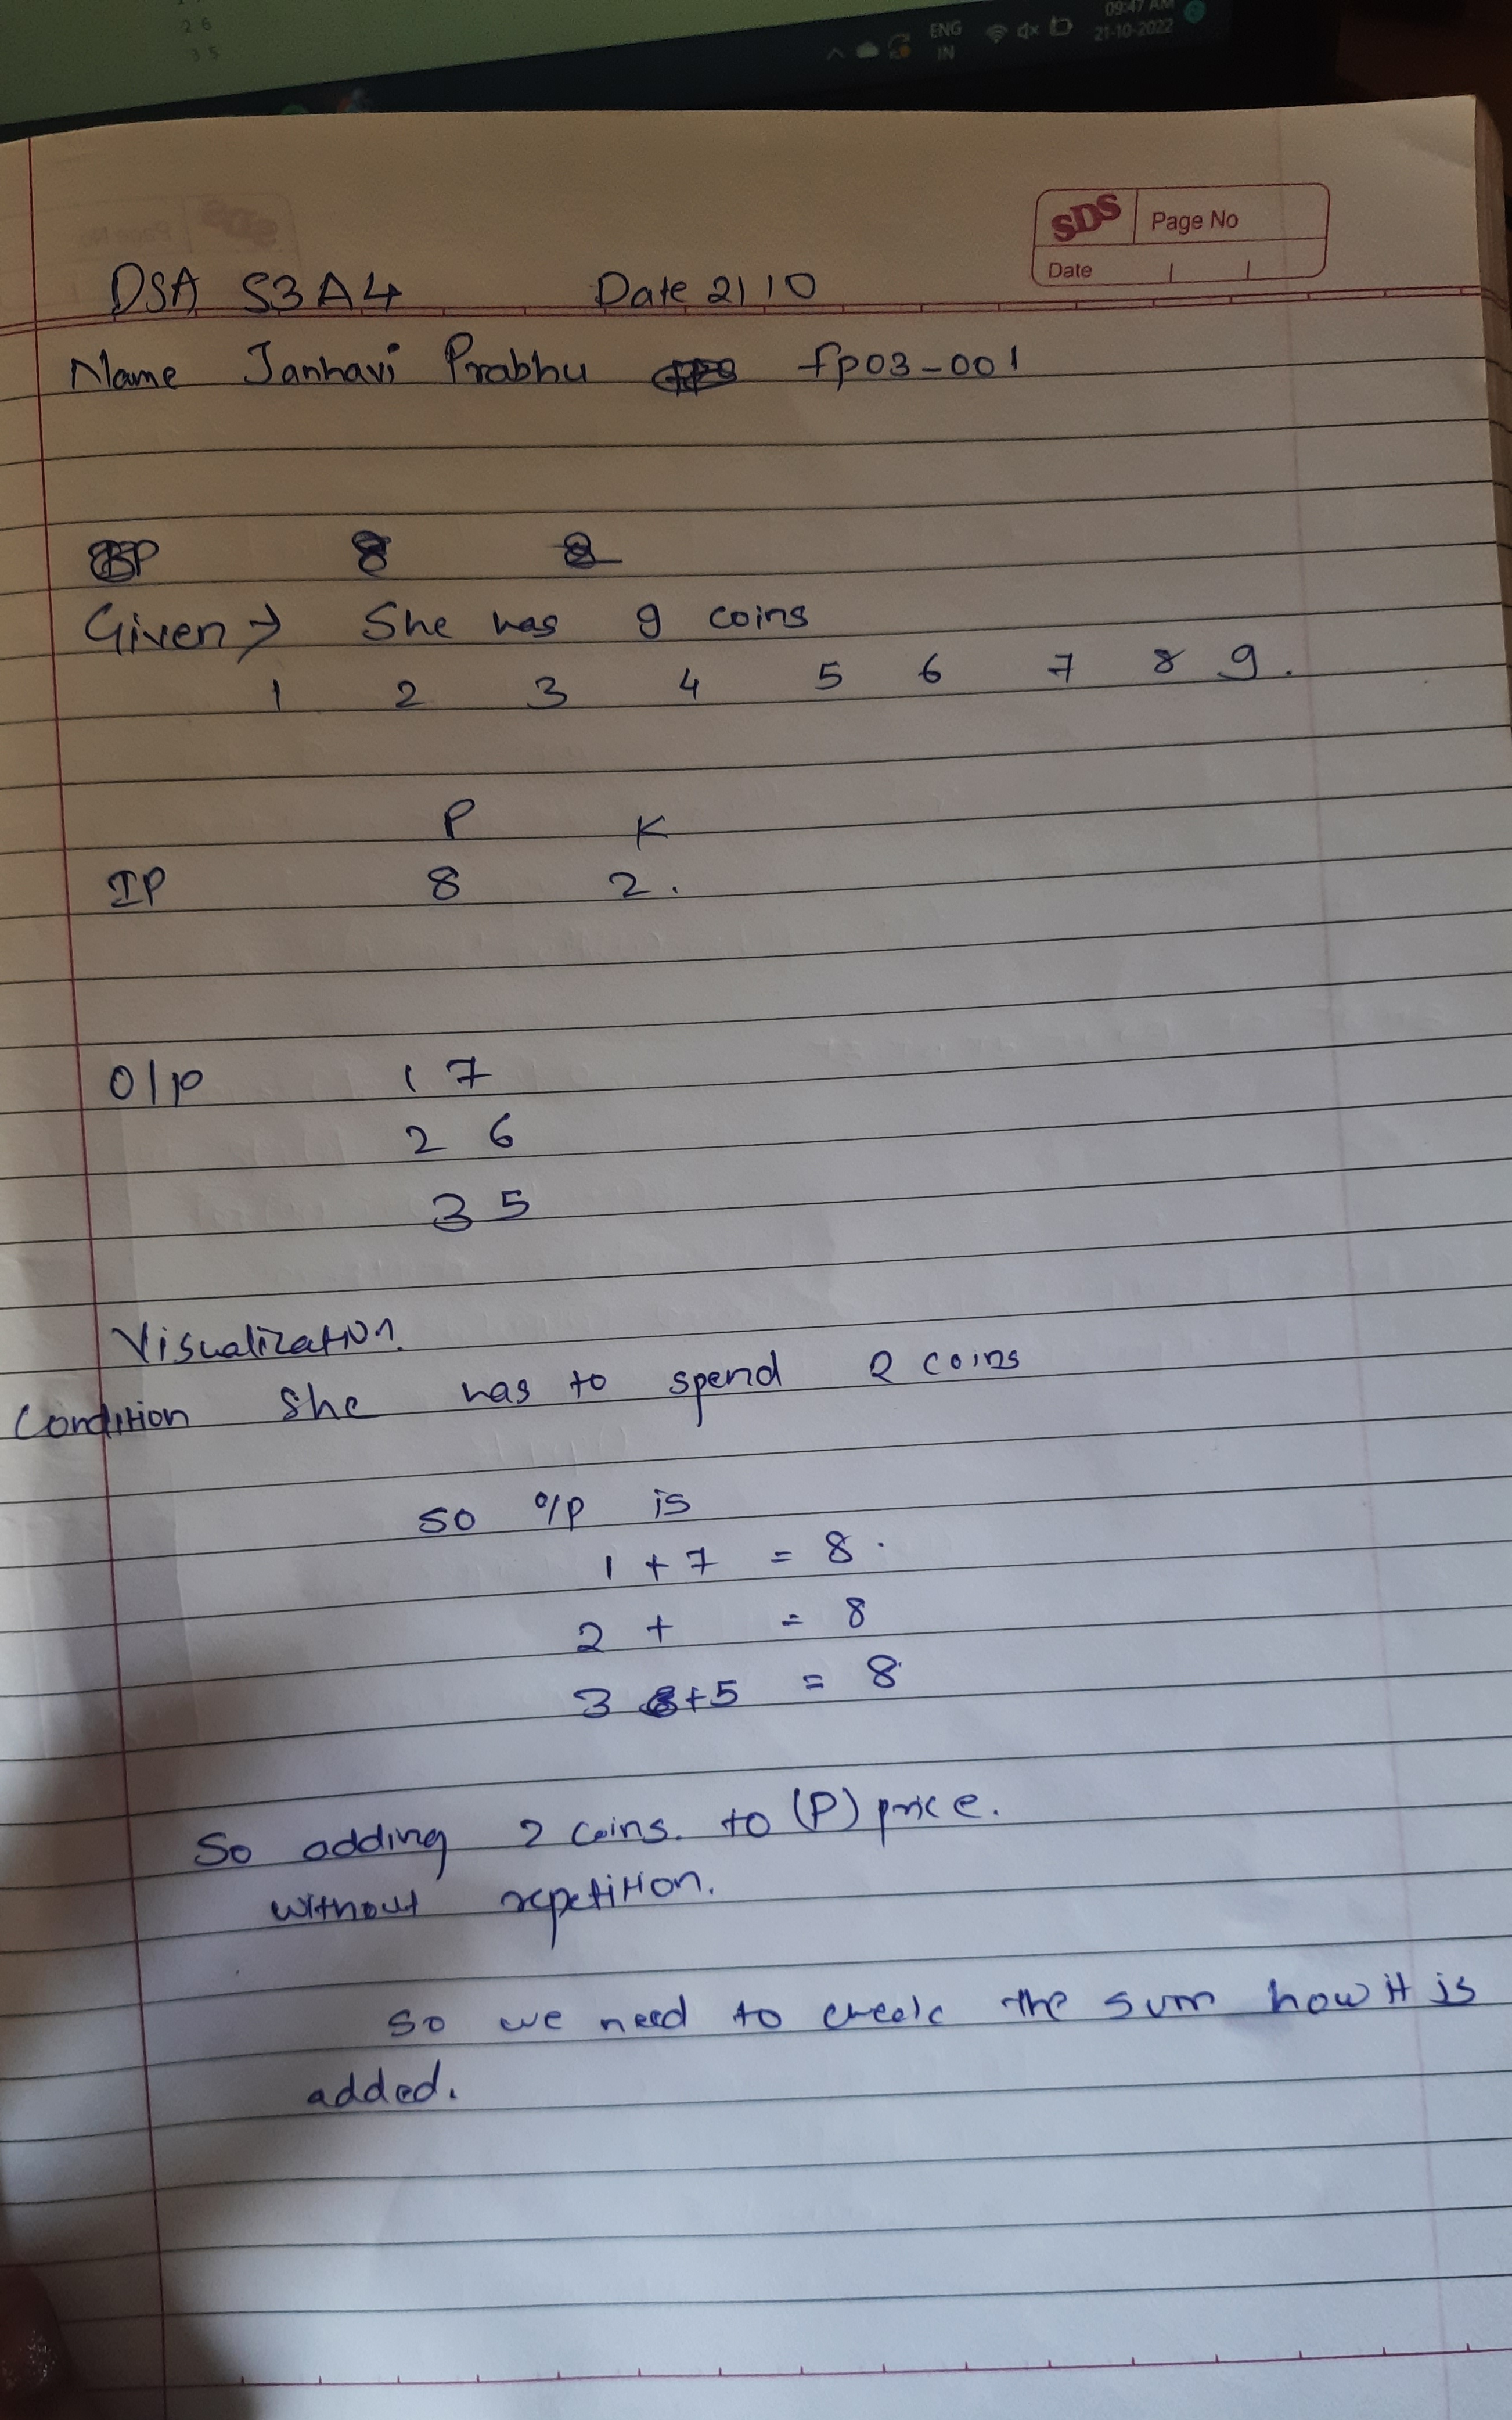 2 6
3 5
ENG
IN
09:47 AM
21-10-2022
SDS Page No
Date
DSA S3A4 Date 21 10
Name Janhavi Prabhu fp03-001
8 2
Given → She has 9 coins
1 2 3 4 5 6 7 8 9.
P K
IP 8 2.
O/P 1 7
2 6
3 5
Visualization.
Condition She has to spend 2 coins
so o/p is
1 + 7 = 8.
2 + = 8
3 +5 = 8
So adding 2 coins. to (P) price.
without repetition.
so we need to check the sum how it is
added.